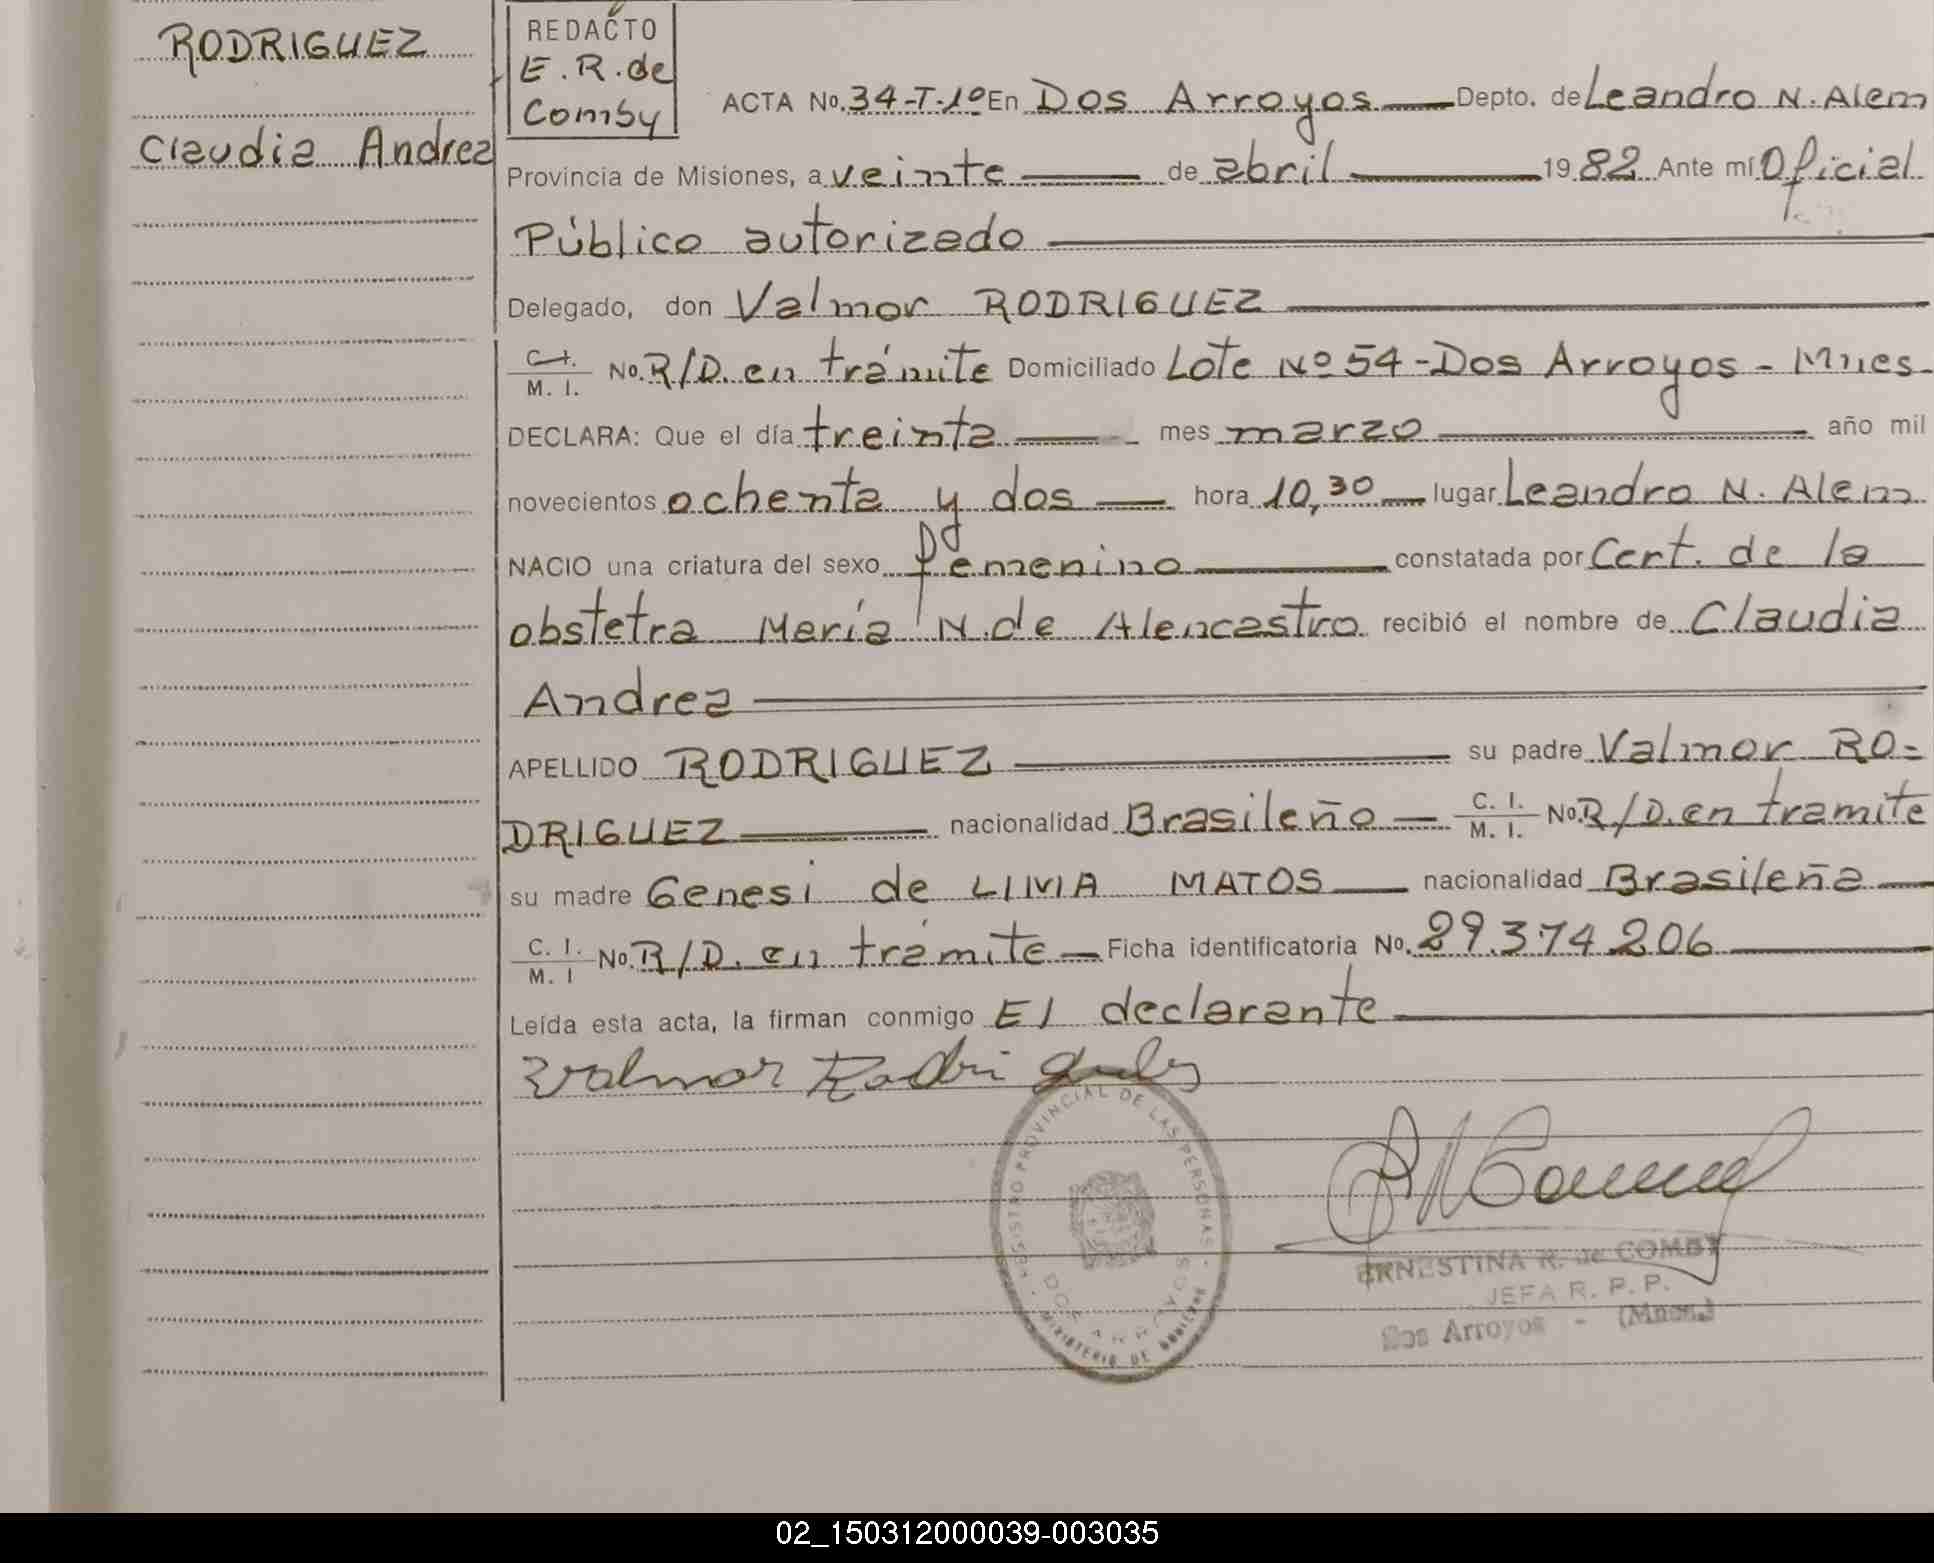 RODRIGUEZ
Claudia Andrea
REDACTO
E.R.de
Comby
ACTA No. 34-T-1º En Dos Arroyos Depto. de Leandro N. Alem
Provincia de Misiones, a veinte de abril 19 82 Ante mí Oficial
Público autorizado
Delegado, don Valmor RODRIGUEZ
C.I. M. I. No. R/D. en trámite Domiciliado Lote Nº 54 - Dos Arroyos - Mnes.
DECLARA: Que el día treinta mes marzo año mil
novecientos ochenta y dos hora 10,30 lugar Leandro N. Alem
NACIO una criatura del sexo femenino constatada por Cert. de la
obstetra María N. de Alencastro recibió el nombre de Claudia
Andrea
APELLIDO RODRIGUEZ su padre Valmor RO-
DRIGUEZ nacionalidad Brasileño C. I. M. I. No. R/D. en tramite
su madre Genesi de LIMA MATOS nacionalidad Brasileña
C. I. M. I No. R/D. en trámite Ficha identificatoria No. 29.374.206
Leída esta acta, la firman conmigo El declarante
Valmor Rodrigues
REGISTRO PROVINCIAL DE LAS PERSONAS
DOS ARROYOS
MINISTERIO DE GOBIERNO
ERNESTINA R. de COMBY
JEFA R. P. P.
Dos Arroyos - (Mnes.)
02_150312000039-003035